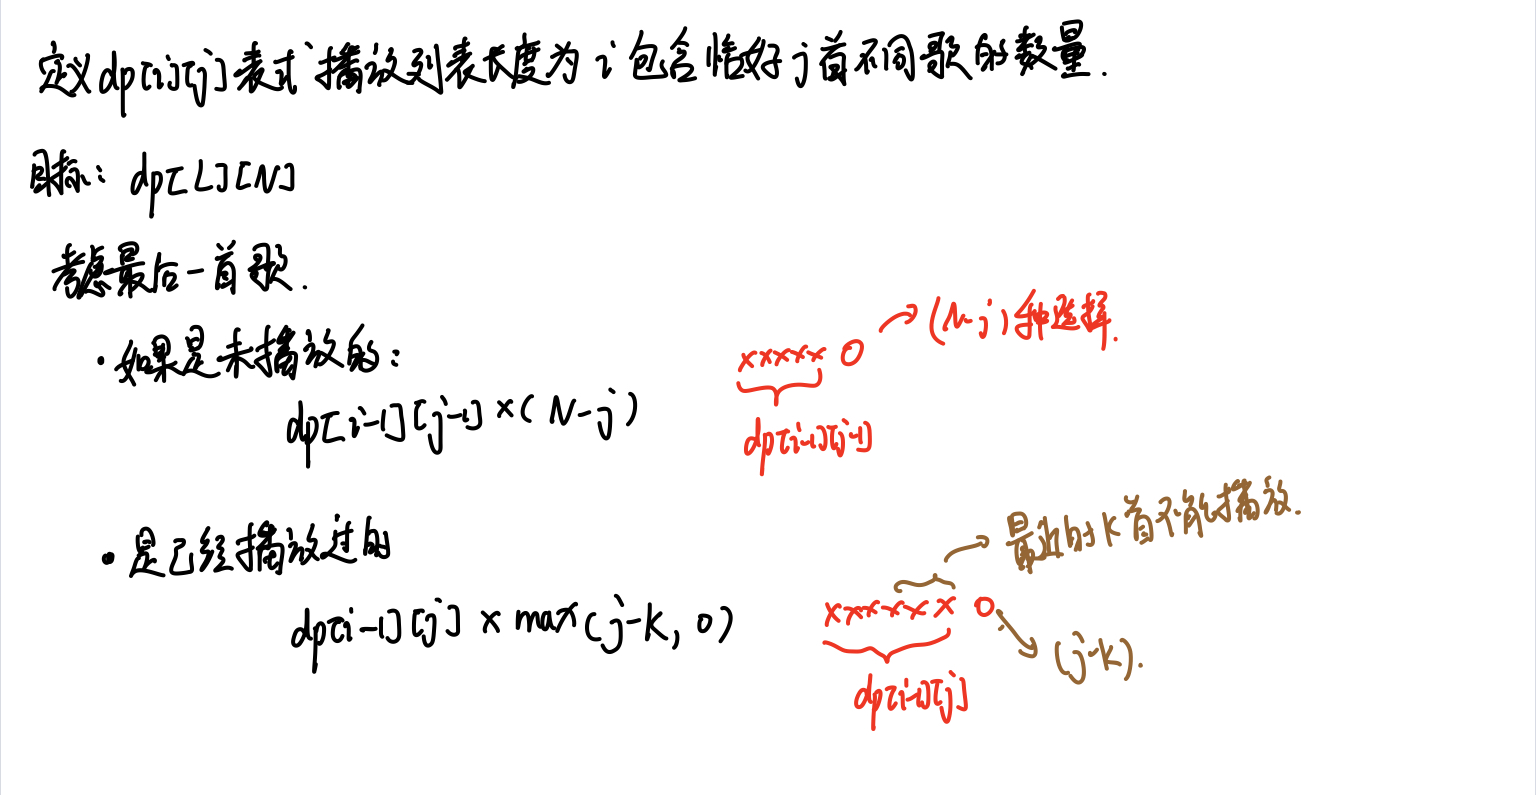 定义dp[i][j]表式播放列表长度为 i 包含恰好 j 首不同歌的数量.
目标: dp[L][N]
考虑最后一首歌.
· 如果是未播放的:
dp[i-1][j-1] × (N-j)
xxxxx O
(N-j)种选择.
dp[i-1][j-1]
· 是已经播放过的
dp[i-1][j] × max(j-k, 0)
最近的k首不能播放.
xxxxxx O
(j-k).
dp[i-1][j]